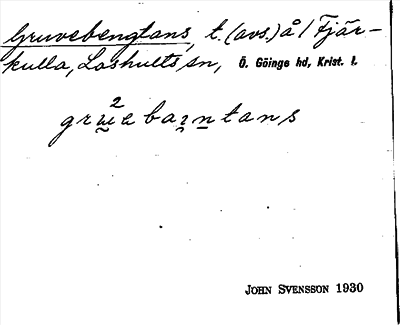 Gruvebengtans, t. (avs.) å / Fjär-
kulla, Loshults sn, Ö. Göinge hd, Krist. l.
2
grṳe baı̯n̠tans
JOHN SVENSSON 1930